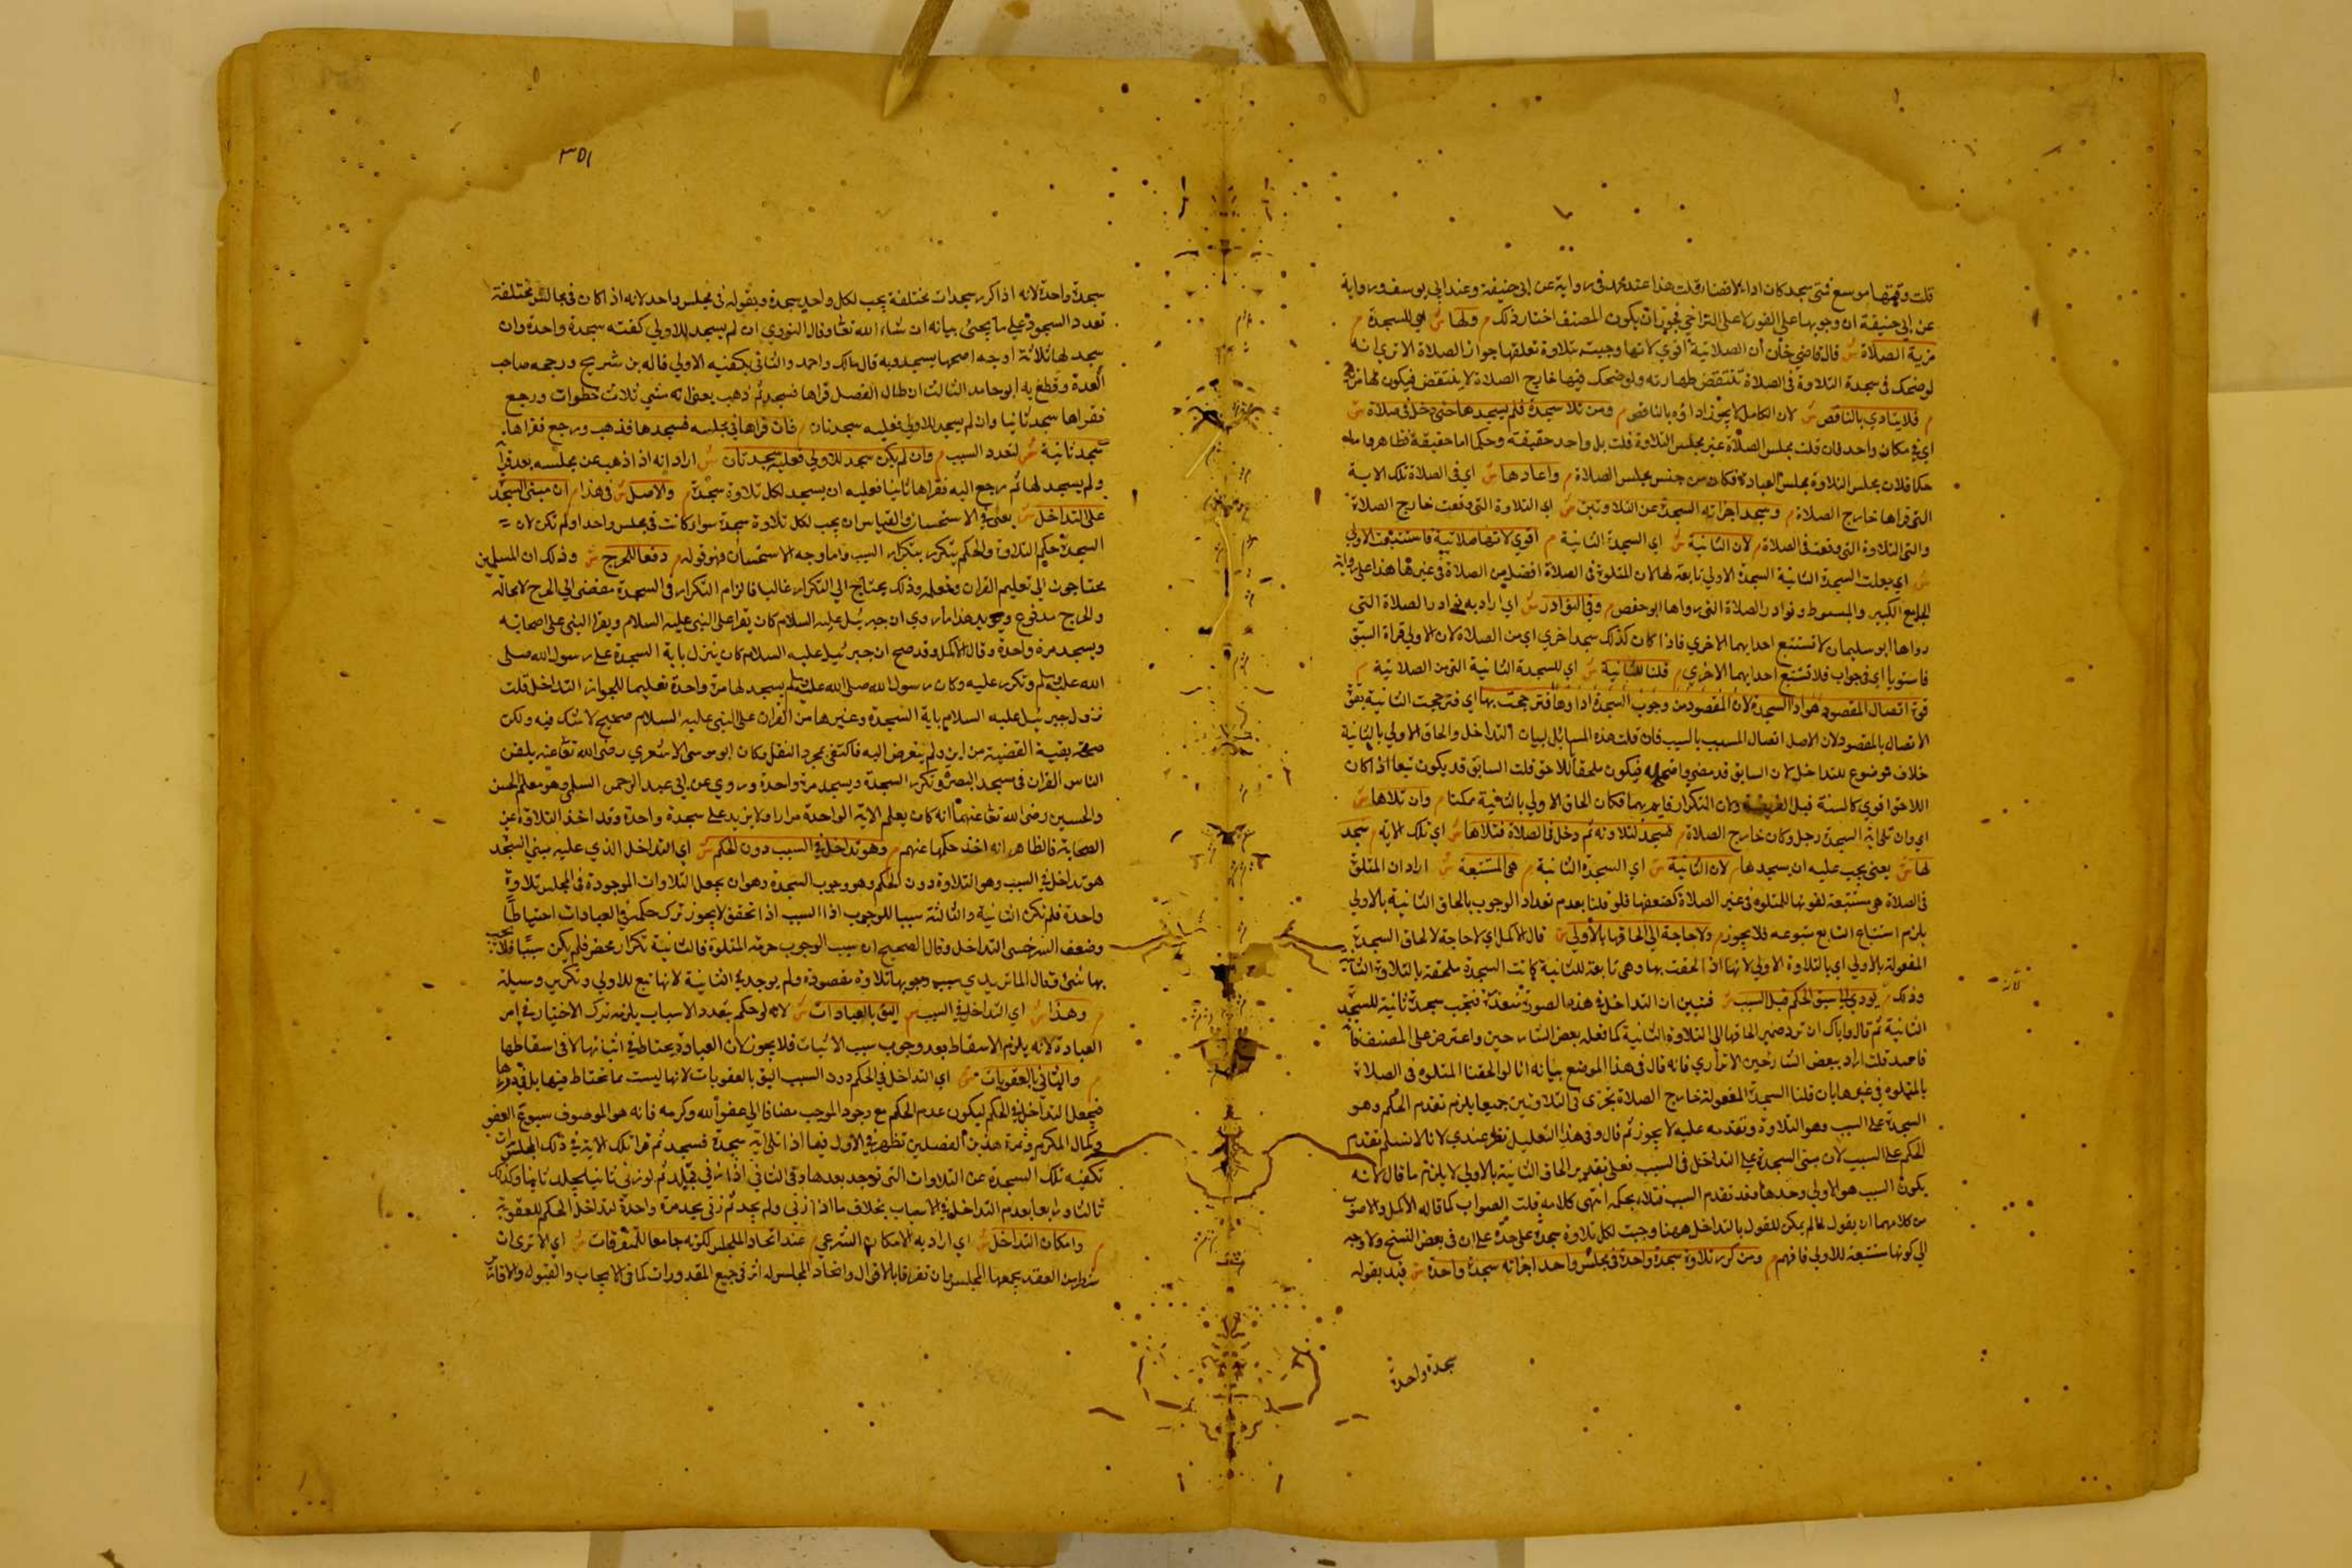 قلت وقتها موسع فمتى سجد كان اداء لا قضاء قلت هذا عند محمد في رواية عن ابي حنيفة وعند ابي يوسف ورواية
عن ابي حنيفة ان وجوبها على الفور لا على التراخي فيجوز ان يكون المصنف اختار ذلك م ولها ش اي للسجدة م
مزية الصلاة ش قال قاضي خان ان الصلاتية اقوى لانها وجبت بتلاوة تعلق بها جواز الصلاة الا ترى انه
لو ضحك في سجدة التلاوة في الصلاة تنتقض طهارته ولو ضحك فيها خارج الصلاة لا ينتقض فيكون لها مزية
م فلا يتادي بالناقص ش لان الكامل لا يجوز اداؤه بالناقص م ومن تلا سجدة فلم يسجدها حتى دخل في صلاة ش
اي في مكان واحد فان قلت مجلس الصلاة غير مجلس التلاوة قلت بل واحد حقيقته وحكما اما حقيقة فظاهر واما
حكما فلان مجلس التلاوة مجلس العبادة فكان من جنس مجلس الصلاة م واعادها ش اي في الصلاة تلك الاية
التي قراها خارج الصلاة م وسجد اجزاته السجدة عن التلاوتين ش اي التلاوة التي وقعت خارج الصلاة
والتي التلاوة التي وقعت في الصلاة م لان الثانية ش اي السجدة الثانية م اقوى لانها صلاتية فاستتبعت الاولى
ش اي جعلت السجدة الثانية السجدة الاولي تابعة لها لان المتلوة في الصلاة افضل من الصلاة في غيرها هذا على رواية
الجامع الكبير والمبسوط ونوادر الصلاة التي رواها ابو حفص م وفي النوادر ش اي اراد به نوادر الصلاة التي
رواها ابو سليمان لا تستتبع احدايهما الاخري فاذا كان كذلك سجد اخري اي من الصلاة لان الاولي قراة السبق
فاستويا اي في جواب فلا تستتبع احدايهما الاخري م قلنا للثانية ش اي للسجدة الثانية التي من الصلاتية م
قوة اتصال المقصود هو اداء السجدة لان المقصود من وجوب السجدة اداوها فترجحت بها اي فترجحت الثانية بقوة
الاتصال بالمقصود لان الاصل اتصال المسبب بالسبب فان قلت هذه المسائل لبيان التداخل والحاق الاولي بالثانية
خلاف موضوع للتداخل لان السابق قد مضى واضمحل فيكون ملحقا للاحق قلت السابق قد يكون تبعا اذا كان
اللاحق اقوي كالسنة قبل الفريضة ولان التكرار قايم بهما فكان الحاق الاولي بالثانية ممكنا م وان تلاها ش
اي وان تلا اية السجدة رجل وكان خارج الصلاة م فسجد لتلاوته ثم دخل في الصلاة فتلاها ش اي تلك الاية م سجد
لها ش يعني يجب عليه ان يسجدها م لان الثانية ش اي السجدة الثانية م هي المستتبعة ش اراد ان المتلوة
في الصلاة هي مستتبعة لقوتها للمتلوه في غير الصلاة لضعفها فلو قلنا بعدم تعداد الوجوب بالحاق الثانية بالاولي
يلزم استتباع التابع متبوعه فلا يجوز م ولا حاجة الى الحاقها بالاولي ش قال الاكمل اي لا حاجة لالحاق السجدة
المفعولة بالاولي اي بالتلاوة الاولي لانها اذا الحقت بها وهي تابعة للثانية كانت السجدة ملحقة بالتلاوة الثانية
وذلك م يودي الى سبق الحكم قبل السبب ش فتبين ان التداخل في هذه الصورة متعذرة فتجب سجدة ثانية للسجدة
لانه
الثانية ثم قال واياك ان ترد ضمير الحاقها الى التلاوة الثانية كما فعله بعض الشارحين واعترض على المصنف
قلت اراد ببعض الشارحين الاتراري فانه قال في هذا الموضع بيانه انا لو الحقنا المتلوه في الصلاة
بالمتلوه في غيرها بان قلنا السجدة المفعولة خارج الصلاة تجزى عن التلاوتين جميعا يلزم تقدم الحكم وهو
السجدة على السبب وهو التلاوة وتقدمه عليه لا يجوز ثم قال وفي هذا التعليل نظر عندي لانا لا نسلم تقدم
الحكم على السبب لان مبنى السجدة على التداخل في السبب فعلى تقدير الحاق الثانية بالاولي لا يلزم ما قال لانه
يكون السبب هو الاولي وحدها فقد تقدم السبب فتلاه بحكمه انتهى كلامه قلت الصواب كما قاله الاكمل والاصوب
من كلامهما ان يقول لما لم يمكن للقول بالتداخل ههنا وجبت لكل تلاوة سجدة على حدة على ان في بعض النسخ ولا وجه
الي كونها مستتبعة للاولي فافهم م ومن كرر تلاوة سجدة واحدة في مجلس واحد اجزاته سجدة واحدة ش قيد بقوله
سجدة واحدة
٣٥١
سجدة واحدة لانه اذا كرر سجدات مختلفة يجب لكل واحد سجدة وبقوله في مجلس واحد لانه اذا كان في مجالس مختلفة
تعدد السجود على ما يجئ بيانه ان شاء الله تعالى وقال النووي ان لم يسجد للاولي كفته سجدة واحدة وان
سجد لها ثلاثة اوجه اصحها يسجد وبه قال مالك واحمد والثاني يكفيه الاولي قاله بن شريح ورجحه صاحب
العدة وقطع به ابو حامد الثالث ان طال الفصل قراها فسجد ثم ذهب يعني انه مشي ثلاث خطوات ورجع
فقراها سجد ثانيا وان لم يسجد للاولي فعليه سجدتان م فان قراها في مجلسه فسجدها فذهب ورجع فقراها
سجد ثانية ش لتعدد السبب م وان لم يكن سجد للاولي فعليه سجدتان ش اراد انه اذا ذهب عن مجلسه بعد
ولم يسجد لها ثم رجع اليه فقراها ثانيا فعليه ان يسجد لكل تلاوة سجدة م والاصل ش في هذا م ان مبنى السجدة
على التداخل ش يعني في الاستحسان والقياس ان يجب لكل تلاوة سجدة سواء كانت في مجلس واحد او لم تكن لان
السجدة حكم التلاوة والحكم يتكرر بتكرار السبب واما وجه الاستحسان فهو قوله م دفعا للحرج ش وذلك ان المسلمين
محتاجون الى تعليم القران وتعلمه وذلك يحتاج الي التكرار غالبا فالزام التكرار في السجدة مفضى الى الحرج لا محالة
والحرج مدفوع ويويد هذا ما روي ان جبرئيل عليه السلام كان يقرا على النبي عليه السلام ويقرا النبي على اصحابه
ويسجد مرة واحدة وقال الاكمل وقد صح ان جبرئيل عليه السلام كان ينزل باية السجدة على رسول الله صلى
الله عليه وسلم وتكرر عليه وكان رسول الله صلى الله عليه وسلم يسجد لها مرة واحدة تعليما للجواز التداخل قلت
نزول جبرئيل عليه السلام باية السجدة وغيرها من القران على النبي عليه السلام صحيح لا شك فيه ولكن
صحة بقية القضية من اين ولم يتعرض اليه فاكتفى بمجرد النقل وكان ابو موسى الاشعري رضى الله تعالى عنه يلقن
الناس القران في مسجد البصرة وتكرر السجدة ويسجد مرة واحدة وروي عن ابي عبد الرحمن السلمي وهو معلم الحسن
والحسين رضى الله تعالى عنهما انه كان يعلم الاية الواحدة مرارا ولا يزيد على سجدة واحدة وقد اخذ التلاوة عن
الصحابة فالظاهر انه اخذ حكمها عنهم م وهو تداخل في السبب دون الحكم ش اي التداخل الذي عليه مبنى السجدة
هو تداخل في السبب وهو التلاوة دون الحكم وهو وجوب السجدة وهو ان يجعل التلاوات الموجودة في المجلس تلاوة
واحدة فلم تكن الثانية والثالثة سببا للوجوب اذا السبب اذا تحقق لا يجوز ترك حكمه في العبادات احتياطا
وضعف السرخسي التداخل وقال الصحيح ان سبب الوجوب حرمة المتلوة فالثانية تكرار محض فلم يكن سببا فلا يجب
بها شئ وقال الماتريدي سبب وجوبها تلاوة مقصودة ولم يوجد في الثانية لانها تبع للاولي وتكرير وسيلة
م وهذا ش اي التداخل في السبب م اليق بالعبادات ش لانه لو حكم بتعدد الاسباب يلزمه ترك الاختيار في امر
العبادة لانه يلزم الاسقاط بعد وجوب سبب الاثبات فلا يجوز لان العبادة يحتاط في اثباتها لا في اسقاطها
م والثاني بالعقوبات ش اي التداخل في الحكم دون السبب اليق بالعقوبات لانها ليست مما تحتاط فيها بل في درءها
فيجعل التداخل في الحكم ليكون عدم الحكم مع وجود الموجب مضافا الي عفو الله وكرمه فانه هو الموصوف بسبوغ العفو
وكمال المكرم وثمرة هذين الفصلين تظهر في الاول فيما اذا تلا اية سجدة فسجد ثم قرا تلك الاية في ذلك المجلس مرات
تكفيه تلك السجدة عن التلاوات التي توجد بعدها وفي الثاني اذا زنى فجلد ثم لو زنى ثانيا يجلد ثانيا وكذلك
ثالثا ورابعا بعدم التداخل في الاسباب بخلاف ما اذا زنى ولم يحد ثم زنى يحد مرة واحدة لتداخل الحكم للعقوبة
م وامكان التداخل ش اي اراد به الامكان الشرعي م عند اتحاد المجلس لكونه جامعا للمتفرقات ش اي الا ترى ان
شطرين العقد يجمعها المجلس وان تفرقا بالاقوال واتحاد المجلس له اثر في جميع المقدورات كما في الايجاب والقبول والاقارير